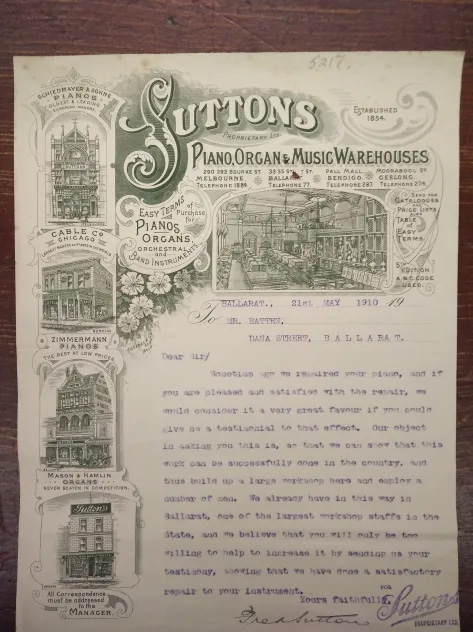 5217.
SUTTONS
PROPRIETARY LTD.
ESTABLISHED
1854.
PIANO, ORGAN & MUSIC WAREHOUSES
290 292 BOURKE ST.
MELBOURNE.
TELEPHONE 1884.
33 35 ST.
BALLARAT.
TELEPHONE 77.
PALL MALL.
BENDIGO.
TELEPHONE 287.
MOORABOOL ST.
GEELONG.
TELEPHONE 274.
EASY TERMS
of
Purchase
for
PIANOS
ORGANS,
ORCHESTRAL
and
BAND INSTRUMENTS.
SEND FOR
CATALOGUES
AND
PRICE LISTS
ALSO
TABLE
OF
EASY
TERMS.
5TH EDITION
A.B.C. CODE
USED.
SCHIEDMAYER & SOHNE
PIANOS
OLDEST & LEADING
EUROPEAN MAKERS.
CABLE CO
CHICAGO
BENDIGO
ZIMMERMANN
PIANOS
THE BEST AT LOW PRICES
MASON & HAMLIN
ORGANS
NEVER BEATEN IN COMPETITION.
Sutton's
All Correspondence
must be addressed
to the
MANAGER.
BALLARAT., 21st MAY 1910 19
To MR. BATTEN,
DANA STREET, B A L L A R A T.
Dear Sir/
Sometime ago we repaired your piano, and if
you are pleased and satisfied with the repair, we
would consider it a very great favour if you could
give us a testimonial to that effect. Our object
in asking you this is, so that we can show that this
work can be successfully done in the country, and
thus build up a large workshop here and employ a
number of men. We already have in this way in
Ballarat, one of the largest workshop staffs in the
State, and we believe that you will only be too
willing to help to increase it by sending us your
testimony, showing that we have done a satisfactory
repair to your instrument.
Yours faithfully,
FOR
Suttons
PROPRIETARY LTD.
Fred Sutton